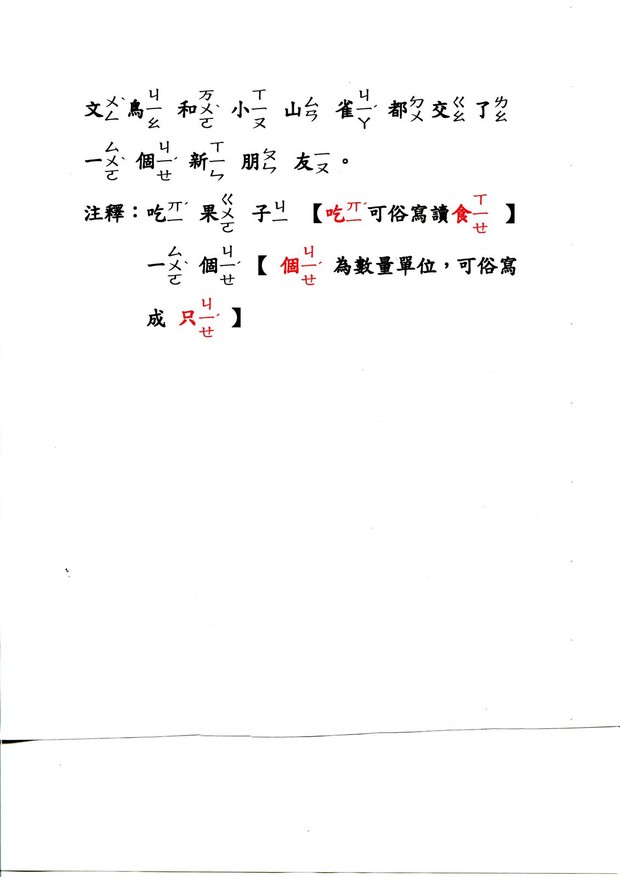 文ㄨㄥˋ鳥ㄐㄧㄠ 和ㄞㄨˋㄛ 小ㄒㄧㄡ 山ㄙㄢ 雀ㄐㄧㄚˊ 都ㄉㄨ 交ㄍㄠ 了ㄌㄠ
一ㄙㄨˋㄛ 個ㄐㄧㄝˊ 新ㄒㄧㄣ 朋ㄆㄥ 友ㄧㄡ 。
注釋：吃 果ㄍㄨㄛ 子ㄐㄧ 【吃可俗寫讀食ㄒㄧㄝ 】
一ㄙㄨˋㄛ 個ㄐㄧㄝˊ【 個ㄐㄧㄝˊ 為數量單位，可俗寫
成 只ㄐㄧㄝˊ 】